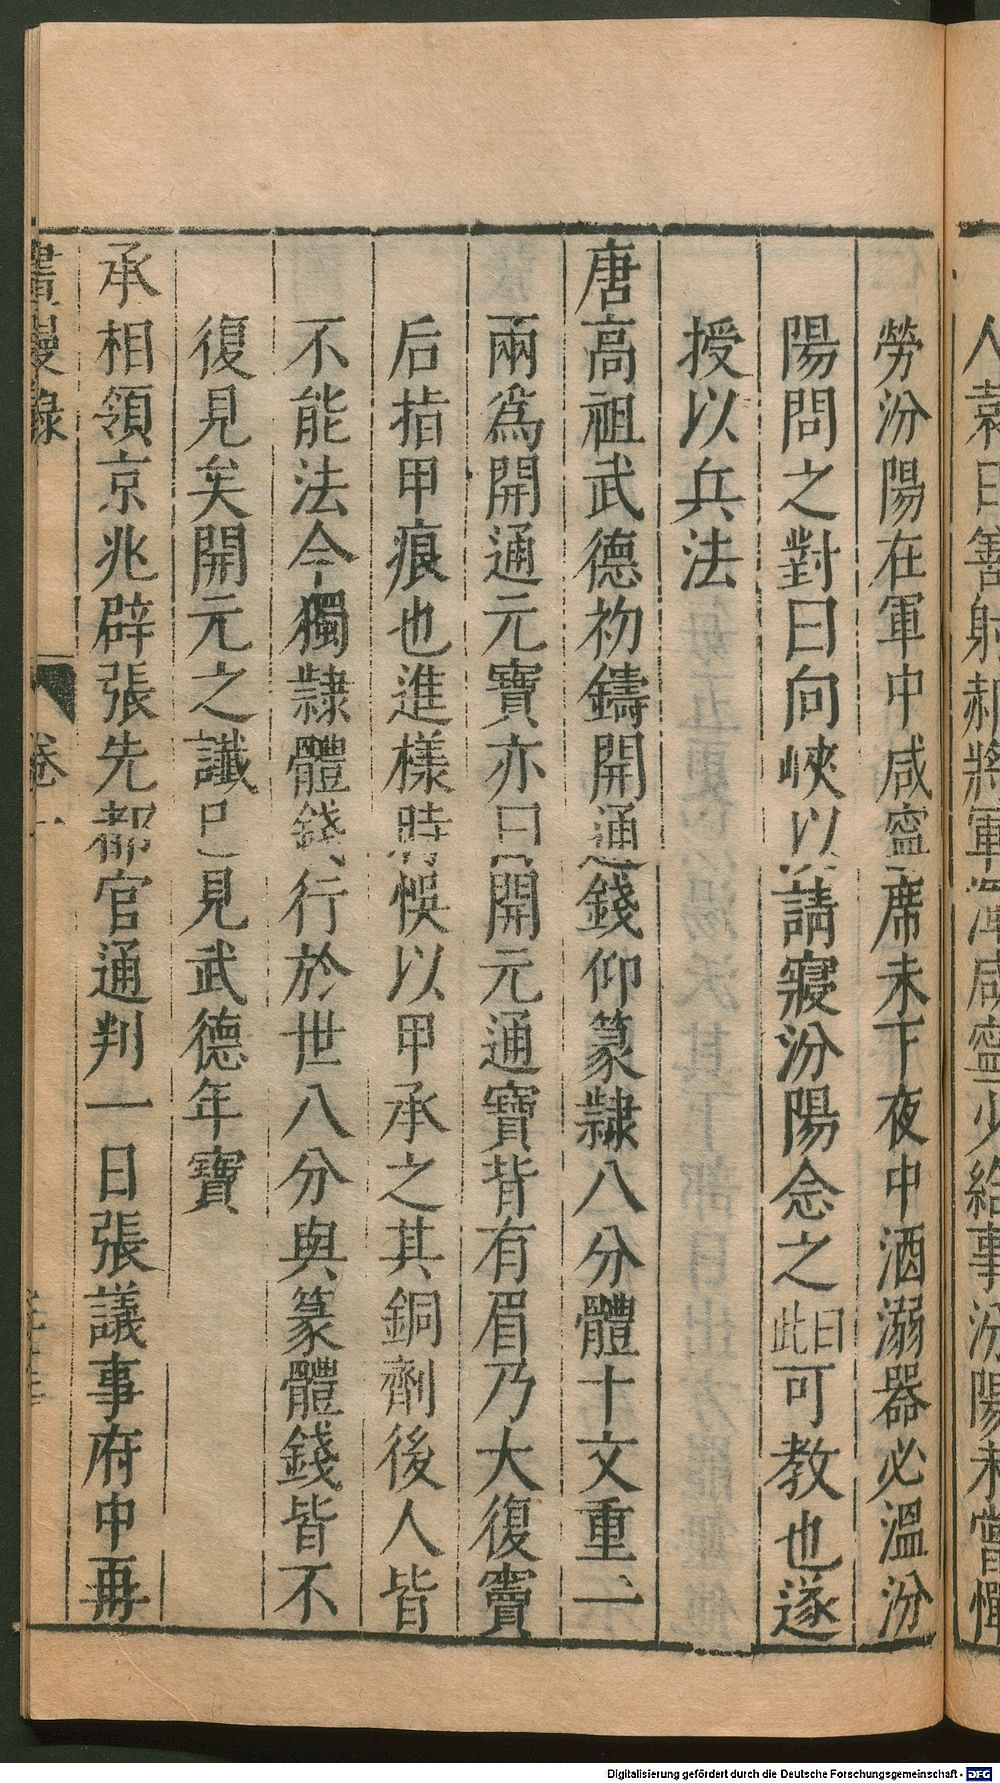 人袁曰善射郝將軍渾咸寧少給事汾陽未嘗憚
勞汾陽在軍中咸寧席未下夜中酒溺器必溫汾
陽問之對曰向峽以請寢汾陽念之曰此可教也遂
授以兵法
唐高祖武德初鑄開通錢仰篆隸八分體十文重一
兩爲開通元寶亦曰開元通寶背有眉乃大復竇
后指甲痕也進樣時悞以甲承之其銅劑後人皆
不能法今獨隸體錢行於世八分與篆體錢皆不
復見矣開元之讖已見武德年寶
承相領京兆辟張先都官通判一日張議事府中再
畫墁錄
卷一
Digitalisierung gefördert durch die Deutsche Forschungsgemeinschaft - DFG